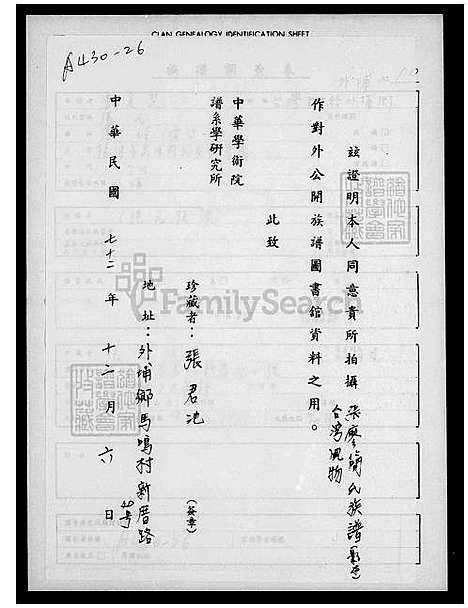 CLAN GENEALOGY IDENTIFICATION SHEET
A430-26
茲證明本人同意貴所拍攝張廖簡氏族譜
台灣風物
作對外公開族譜圖書舘資料之用。
此致
中華學術院
譜系學研究所
珍藏者:張君 (簽章)
地址:外埔鄉馬鳴村新厝路
40号
中華民國七十二年十二月六日
FamilySearch